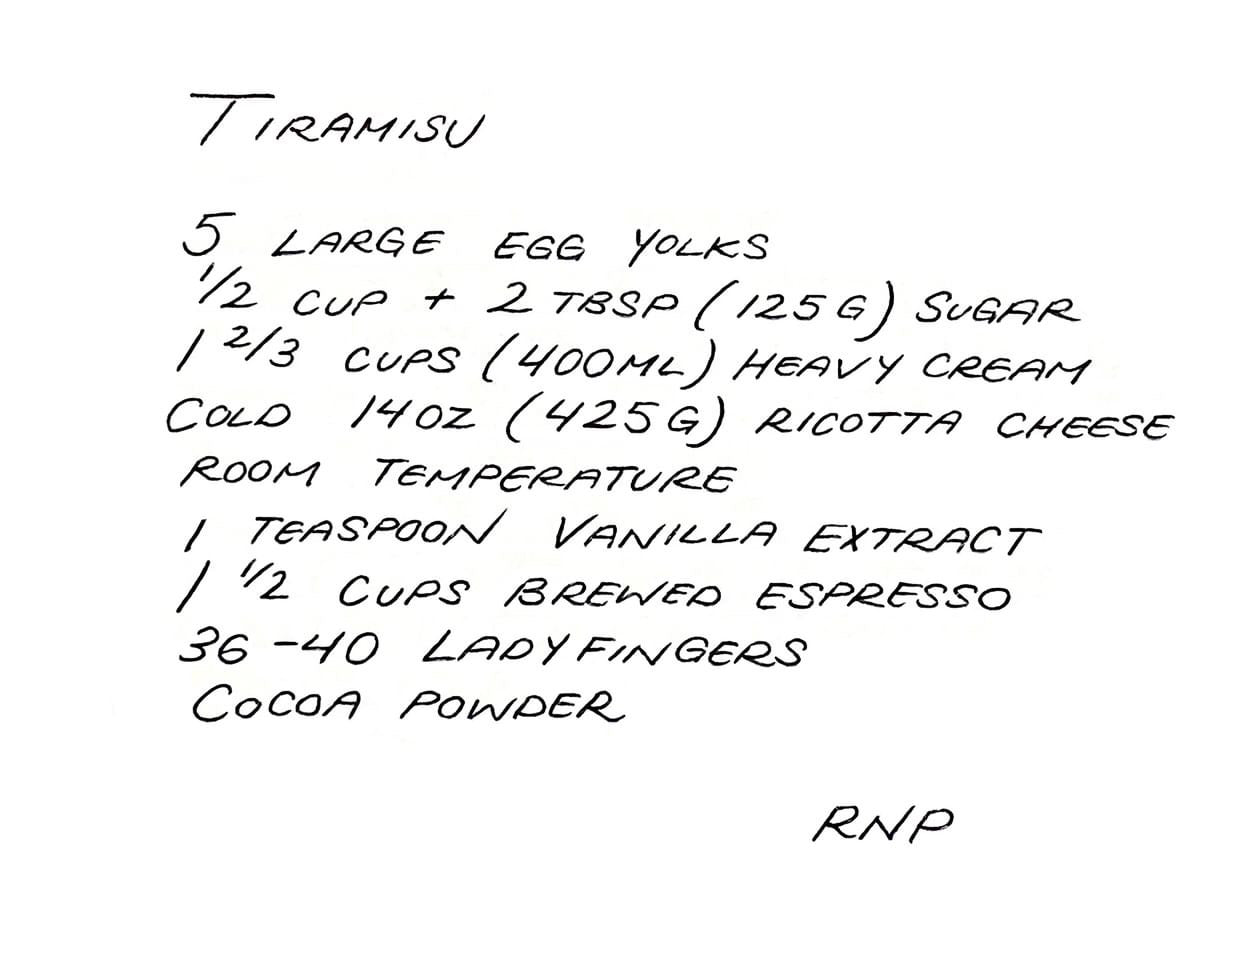 TIRAMISU
5 LARGE EGG YOLKS
1/2 CUP + 2 TBSP (125G) SUGAR
1 2/3 CUPS (400ML) HEAVY CREAM
COLD 14OZ (425G) RICOTTA CHEESE
ROOM TEMPERATURE
1 TEASPOON VANILLA EXTRACT
1 1/2 CUPS BREWED ESPRESSO
36-40 LADYFINGERS
COCOA POWDER
RNP